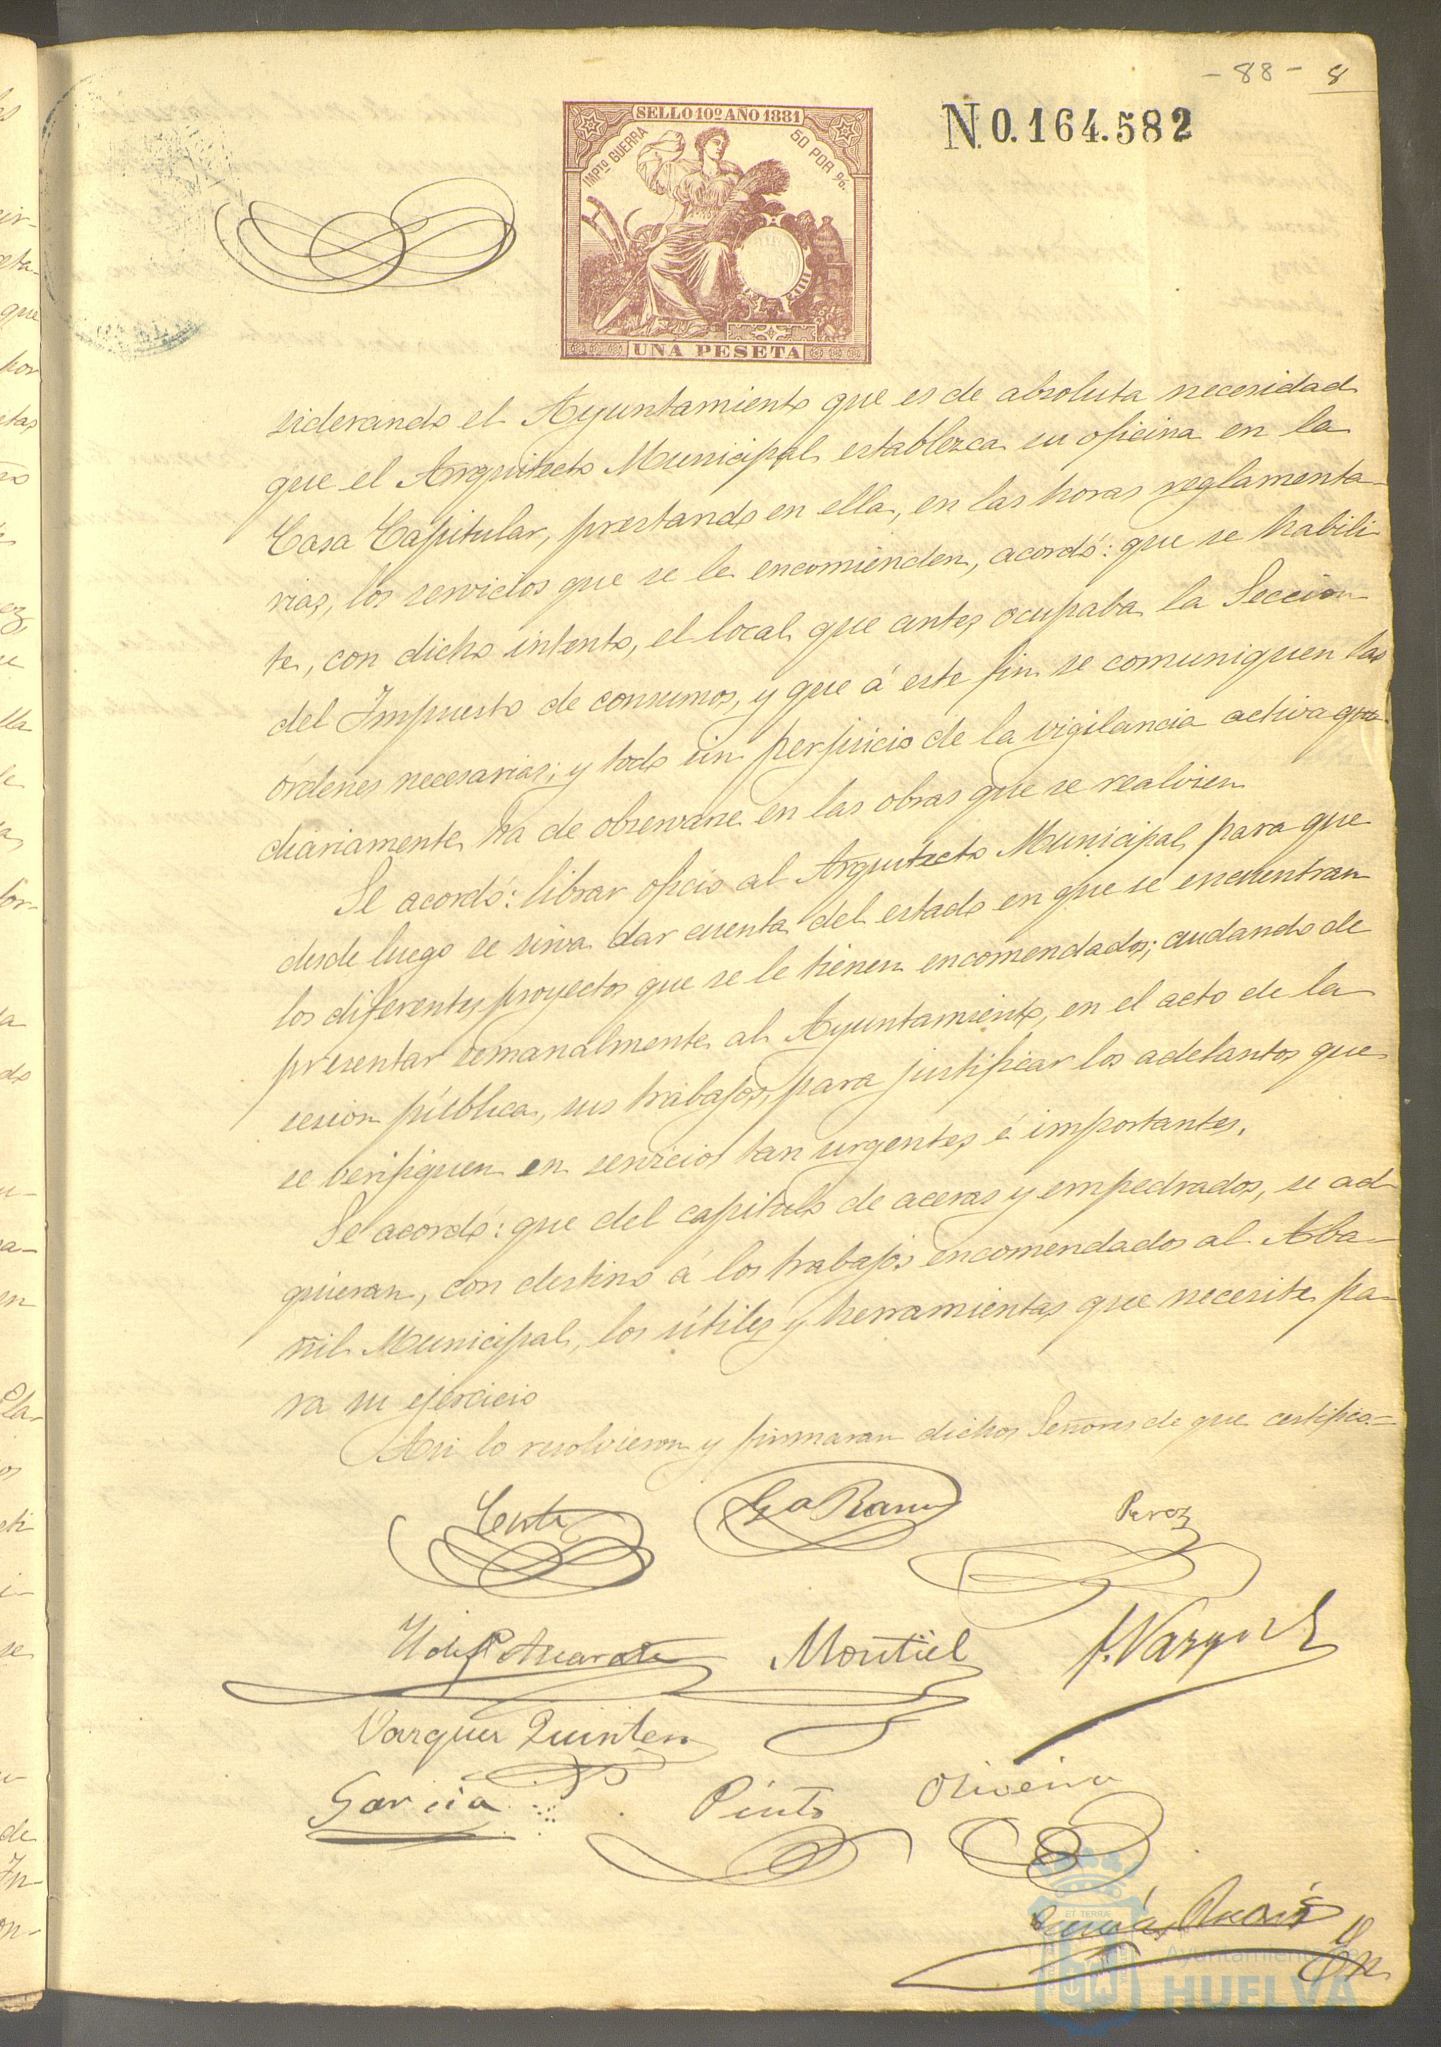 - 88 - 8
SELLO 10º AÑO 1881
IMPTO GUERRA
50 POR %.
UNA PESETA
N 0.164.582
siderando el Ayuntamiento que es de absoluta necesidad
que el Arquitecto Municipal establezca su oficina en la
Casa Capitular, prestando en ella, en las horas reglamenta-
rias, los servicios que se le encomienden, acordó: que se habili
te, con dicho intento, el local que antes ocupaba la Seccion
del Impuesto de consumos, y que á este fin se comuniquen las
ordenes necesarias; y todo sin perjuicio de la vigilancia activa que
diariamente ha de observarse en las obras que se realicen
Se acordó: librar oficio al Arquitecto Municipal para que
desde luego se sirva dar cuenta del estado en que se encuentran
los diferentes proyectos que se le tienen encomendados; cuidando de
presentar semanalmente al Ayuntamiento, en el acto de la
sesion pública, sus trabajos, para justificar los adelantos que
se verifiquen en servicios tan urgentes é importantes.
Se acordó: que del capitulo de aceras y empedrados, se ad
quieran, con destino á los trabajos encomendados al Alba-
ñil Municipal, los útiles y herramientas que necesite pa-
ra su ejercicio
Asi lo resolvieron y firmaran dichos Señores de que certifico=
Perez
Montiel
J. Vazquez
Vazquez Quintero
Garcia
Pinto
Oliveira
ET TERRÆ
Ayuntamiento de
HUELVA